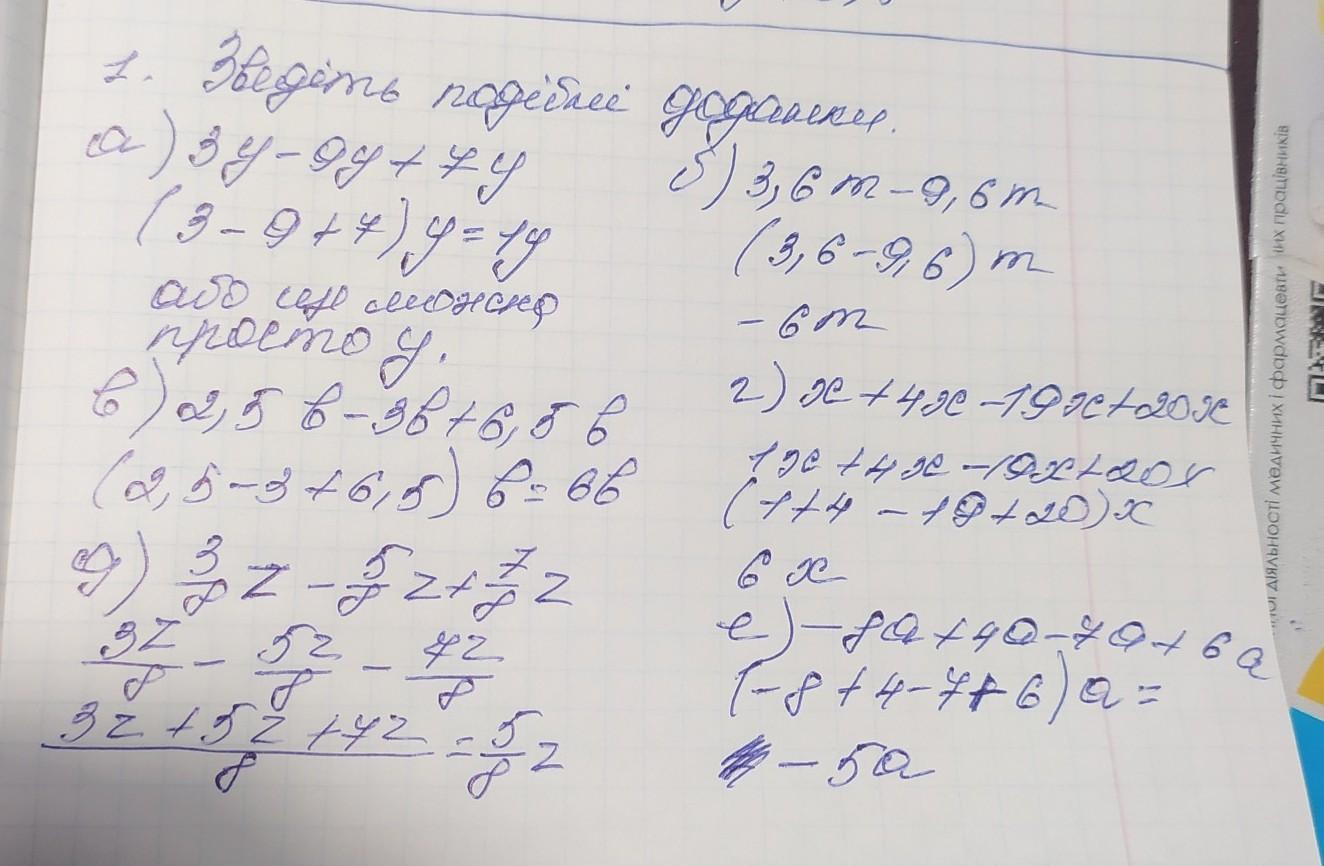 1. Зведіть подібні доданки.
а) 3y - 9y + 7y
(3 - 9 + 7) y = 1y
або це можна
просто y.
б) 3,6m - 9,6m
(3,6 - 9,6) m
- 6m
в) 2,5 b - 3b + 6,5 b
(2,5 - 3 + 6,5) b = 6b
г) x + 4x - 19x + 20x
1x + 4x - 19x + 20x
(1 + 4 - 19 + 20) x
6 x
д) 3/8 z - 5/8 z + 7/8 z
3z/8 - 5z/8 - 7z/8
3z + 5z + 7z/8 = 5/8 z
е) - 8a + 4a - 7a + 6a
(- 8 + 4 - 7 + 6) a =
- 5a
діяльності медичних і фармацевти
их працівників